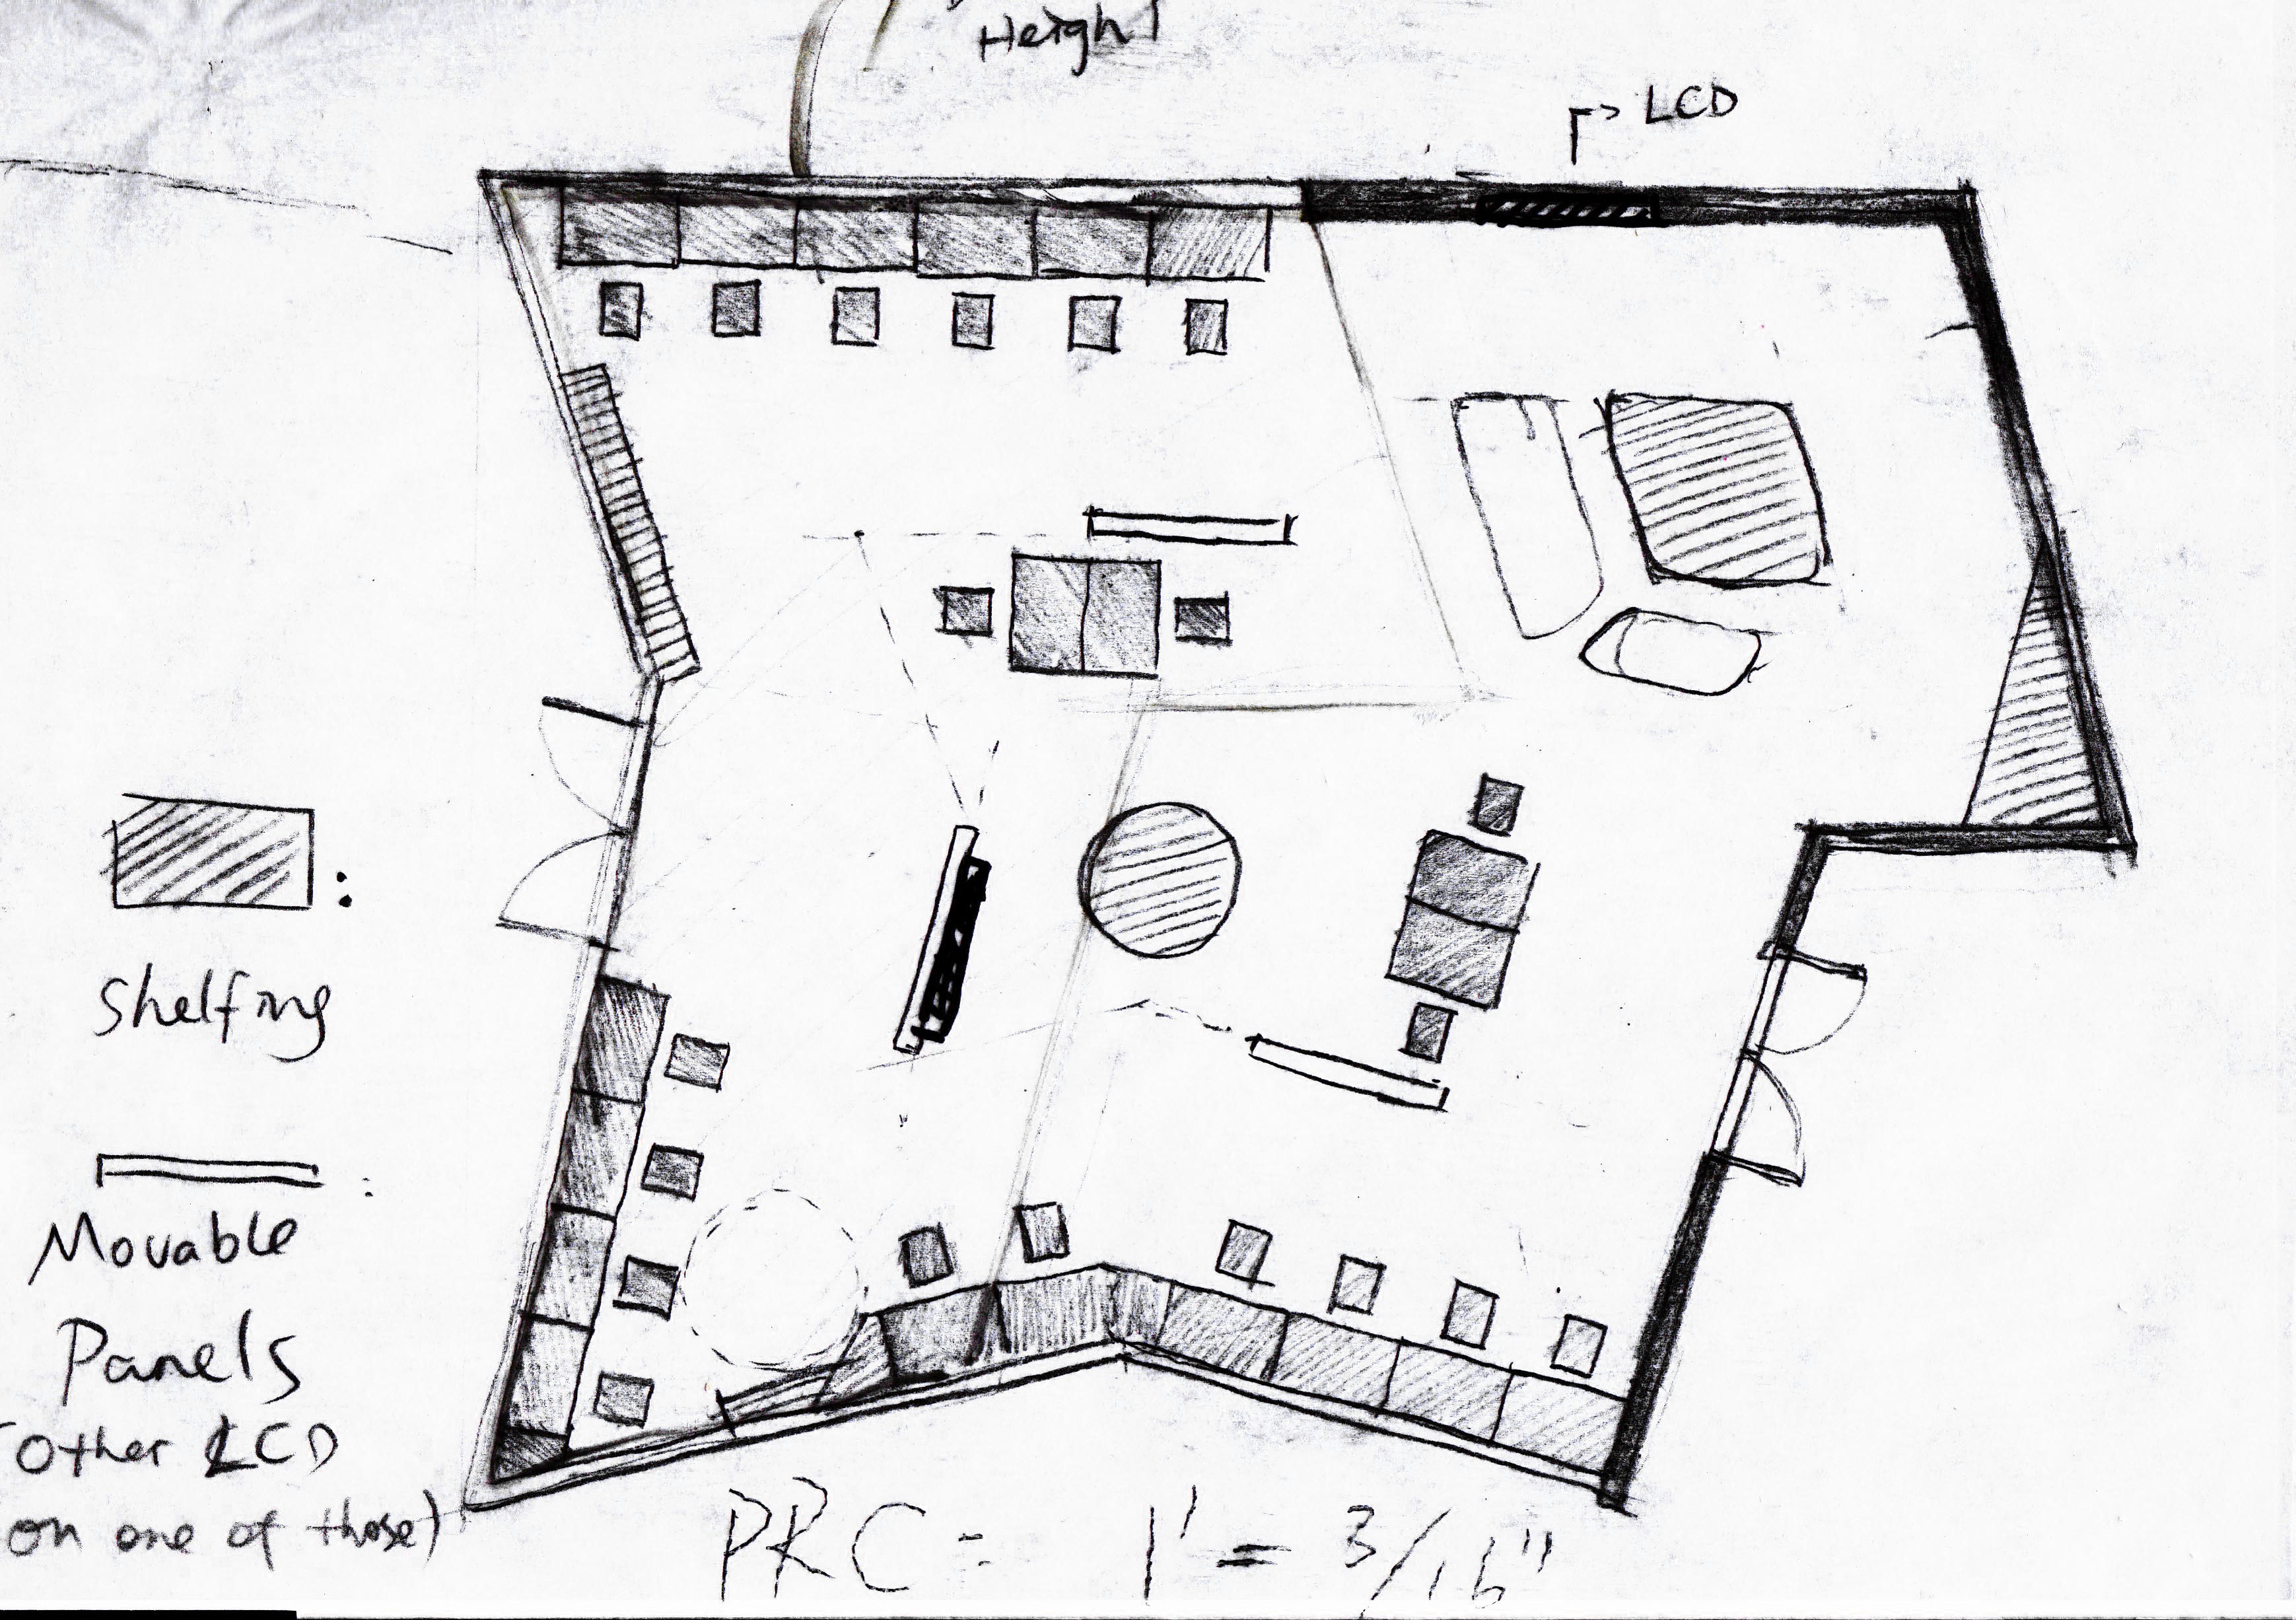 Height
LCD
:
Shelfing
:
Movable
Panels
(other LCD
on one of those)
PRC: 1' = 3/16"